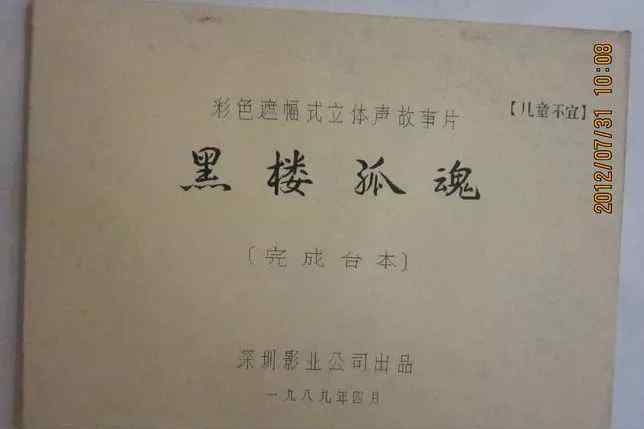 彩色遮幅式立体声故事片
【儿童不宜】
黑楼孤魂
〔完成台本〕
深圳影业公司出品
一九八九年四月
2012/07/31 10:08